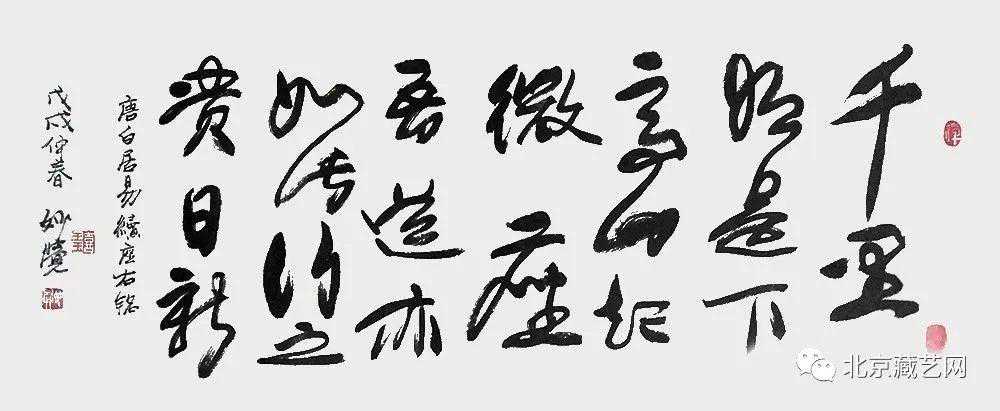 千里
始足下
高山起
微塵
吾道亦
如此行之
貴日新
唐白居易續座右銘
戊戌仲春 妙覺
北京藏艺网